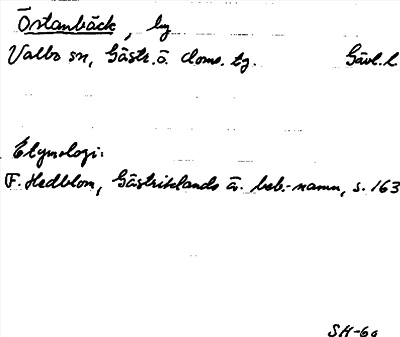 Östanbäck, by
Valbo sn, Gästr. ö. doms. tg. Gävl. l
Etymologi:
F. Hedblom, Gästriklands ä. beb.-namn, s. 163
SH-60